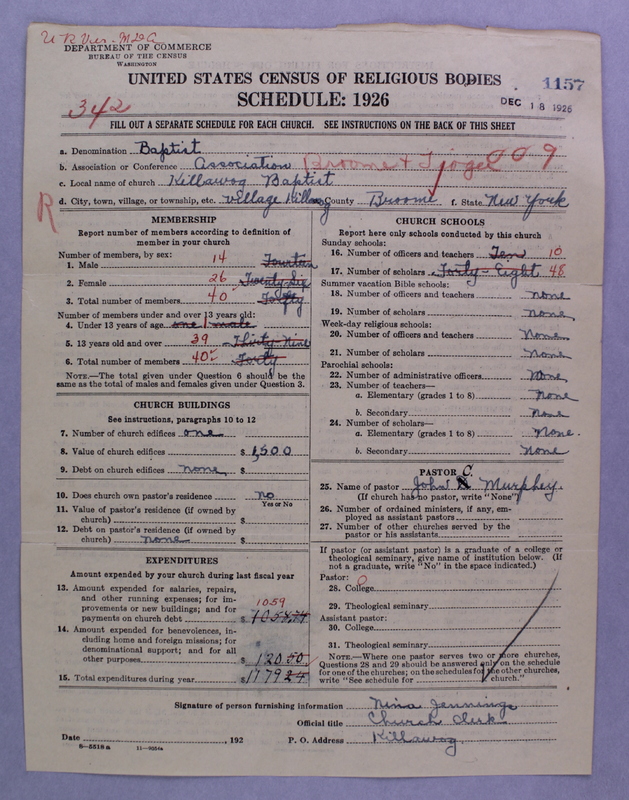 U R Ver. M D A
DEPARTMENT OF COMMERCE
BUREAU OF THE CENSUS
WASHINGTON
UNITED STATES CENSUS OF RELIGIOUS BODIES
1157
SCHEDULE: 1926
DEC 18 1926
342
FILL OUT A SEPARATE SCHEDULE FOR EACH CHURCH. SEE INSTRUCTIONS ON THE BACK OF THIS SHEET
a. Denomination Baptist
b. Association or Conference Association Broome & Tioga 009
c. Local name of church Killawog Baptist
d. City, town, village, or township, etc. village Killawog County Broome f. State New York
R
MEMBERSHIP
Report number of members according to definition of
member in your church
Number of members, by sex:
1. Male 14 Fourteen
2. Female 26 Twenty-Six
3. Total number of members 40 Forty
Number of members under and over 13 years old:
4. Under 13 years of age one 1 male
5. 13 years old and over 39 Thirty-Nine
6. Total number of members 40 Forty
NOTE.—The total given under Question 6 should be the
same as the total of males and females given under Question 3.
CHURCH BUILDINGS
See instructions, paragraphs 10 to 12
7. Number of church edifices one
8. Value of church edifices $1,500
9. Debt on church edifices none $
10. Does church own pastor's residence no
Yes or No
11. Value of pastor's residence (if owned by
church) $
12. Debt on pastor's residence (if owned by
church) none $
EXPENDITURES
Amount expended by your church during last fiscal year
13. Amount expended for salaries, repairs,
and other running expenses; for im-
provements or new buildings; and for
payments on church debt 1059 $1058.74
14. Amount expended for benevolences, in-
cluding home and foreign missions; for
denominational support; and for all
other purposes $120.50
15. Total expenditures during year $1179.24
CHURCH SCHOOLS
Report here only schools conducted by this church
Sunday schools:
16. Number of officers and teachers Ten 10
17. Number of scholars Forty-Eight 48
Summer vacation Bible schools:
18. Number of officers and teachers none
19. Number of scholars none
Week-day religious schools:
20. Number of officers and teachers None
21. Number of scholars None
Parochial schools:
22. Number of administrative officers None
23. Number of teachers—
a. Elementary (grades 1 to 8) None
b. Secondary None
24. Number of scholars—
a. Elementary (grades 1 to 8) None.
b. Secondary None
PASTOR
25. Name of pastor John C. Murphey.
(If church has no pastor, write "None")
26. Number of ordained ministers, if any, em-
ployed as assistant pastors
27. Number of other churches served by the
pastor or his assistants
If pastor (or assistant pastor) is a graduate of a college or
theological seminary, give name of institution below. (If
not a graduate, write "No" in the space indicated.)
Pastor:
28. College 0
29. Theological seminary
Assistant pastor:
30. College
31. Theological seminary
NOTE.—Where one pastor serves two or more churches,
Questions 28 and 29 should be answered only on the schedule
for one of the churches; on the schedules for the other churches,
write "See schedule for church."
Signature of person furnishing information Nina Jennings
Official title Church Clerk
Date , 192 P. O. Address Killawog
8—5518a 11—9054a